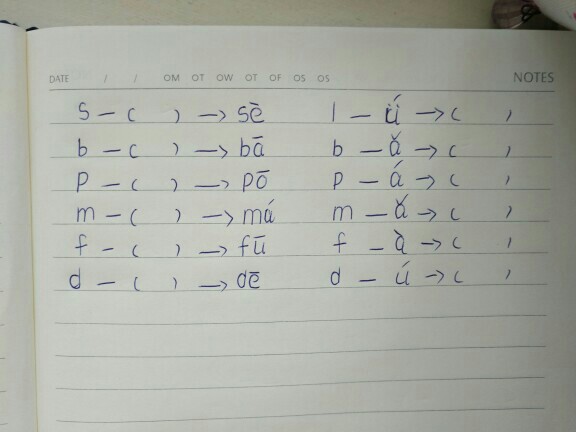 DATE / / OM OT OW OT OF OS OS NOTES
s — ( ) → sē l — ǘ → ( )
b — ( ) → bā b — ǎ → ( )
p — ( ) → pō p — á → ( )
m — ( ) → má m — ǎ → ( )
f — ( ) → fū f — à → ( )
d — ( ) → dē d — ú → ( )